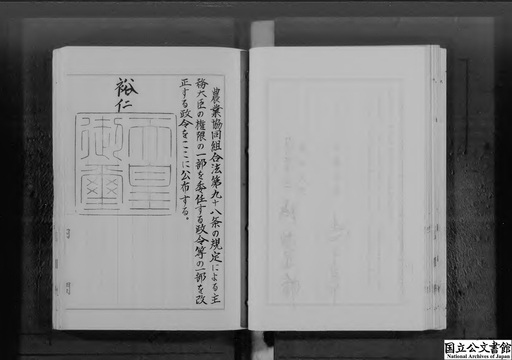 農業協同組合法第九十八条の規定による主
務大臣の権限の一部を委任する政令等の一部を改
正する政令をここに公布する。
裕仁
天皇
御璽
国立公文書館
National Archives of Japan